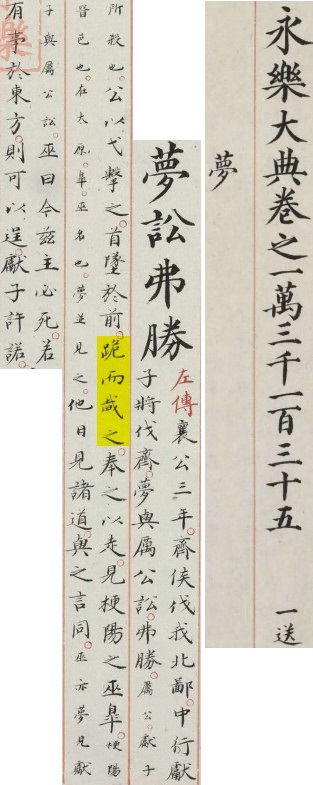 永樂大典卷之一萬三千一百三十五 一送
夢
夢訟弗勝
左傳襄公三年。齊侯伐我北鄙。中行獻
子將伐齊。夢與厲公訟。弗勝。厲公。獻子
所殺也。公以戈擊之。首墜於前。跪而戴之。奉之以走。見梗陽之巫皐。梗陽
晉邑也。在太原。皐。巫名也。夢並見之。他日見諸道。與之言同。巫亦夢見獻
子與厲公訟。巫曰今茲主必死。若
有事於東方。則可以逞。獻子許諾。